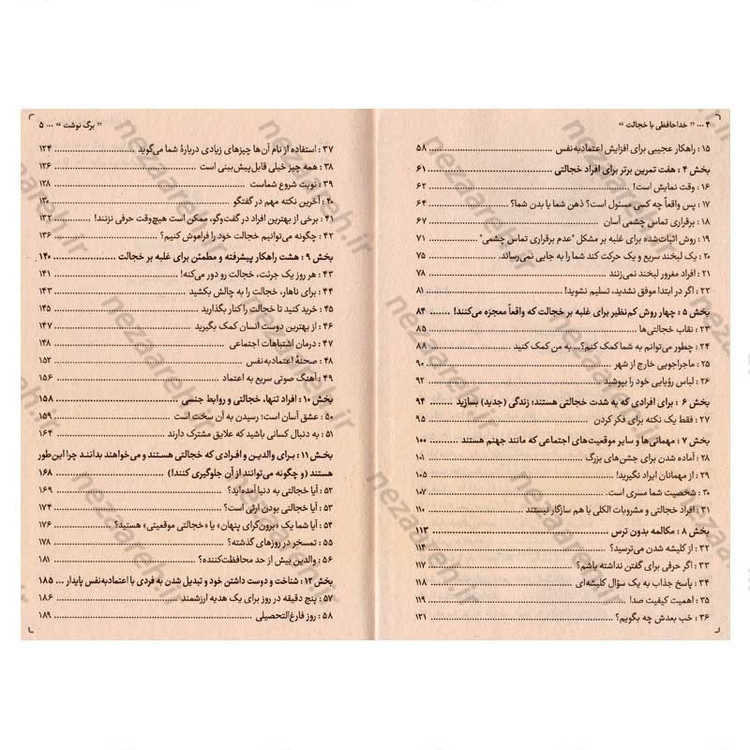 ۴ ... " خداحافظی با خجالت "
۱۵ : راهکار عجیبی برای افزایش اعتمادبه‌نفس ........ ۵۸
بخش ۴ : هفت تمرین برتر برای افراد خجالتی ........ ۶۱
۱۶ : وقت نمایش است! ........ ۶۲
۱۷ : پس واقعاً چه کسی مسئول است؟ ذهن شما یا بدن شما؟ ........ ۶۴
۱۸ : برقراری تماس چشمی آسان ........ ۶۷
۱۹ : روش اثبات‌شده برای غلبه بر مشکل "عدم برقراری تماس چشمی" ........ ۷۱
۲۰ : یک لبخند سریع و یک حرکت کند شما را به جایی نمی‌رساند. ........ ۷۵
۲۱ : افراد مغرور لبخند نمی‌زنند ........ ۷۸
۲۲ : اگر در ابتدا موفق نشدید، تسلیم نشوید! ........ ۸۱
بخش ۵ : چهار روش کم‌نظیر برای غلبه بر خجالت که واقعاً معجزه می‌کنند! ........ ۸۴
۲۳ : نقاب خجالتی‌ها ........ ۸۵
۲۴ : چطور می‌توانم به شما کمک کنم؟ـ به من کمک کنید ........ ۸۸
۲۵ : ماجراجویی خارج از شهر ........ ۹۰
۲۶ : لباس رؤیایی خود را بپوشید ........ ۹۲
بخش ۶ : برای افرادی که به شدت خجالتی هستند: زندگی (جدید) بسازید ........ ۹۴
۲۷ : فقط یک نکته برای فکر کردن ........ ۹۵
بخش ۷ : مهمانی‌ها و سایر موقعیت‌های اجتماعی که مانند جهنم هستند ........ ۱۰۰
۲۸ : آماده شدن برای جشن‌های بزرگ ........ ۱۰۱
۲۹ : از مهمانان ایراد نگیرید! ........ ۱۰۵
۳۰ : شخصیت شما مسری است. ........ ۱۰۷
۳۱ : افراد خجالتی و مشروبات الکلی با هم سازگار نیستند ........ ۱۱۰
بخش ۸ : مکالمه بدون ترس ........ ۱۱۳
۳۲ : از کلیشه شدن می‌ترسید؟ ........ ۱۱۴
۳۳ : اگر حرفی برای گفتن نداشته باشم؟ ........ ۱۱۷
۳۴ : پاسخ جذاب به یک سؤال کلیشه‌ای ........ ۱۱۸
۳۵ : اهمیت کیفیت صدا ........ ۱۱۹
۳۶ : خب بعدش چه بگویم؟ ........ ۱۲۱
" برگ نوشت " ... ۵
۳۷ : استفاده از نام آن‌ها چیزهای زیادی دربارهٔ شما می‌گوید ........ ۱۲۴
۳۸ : همه چیز خیلی قابل‌پیش‌بینی است ........ ۱۲۶
۳۹ : نوبت شروع شماست ........ ۱۲۸
۴۰ : آخرین نکته مهم در گفتگو ........ ۱۳۰
۴۱ : برخی از بهترین افراد در گفت‌وگو، ممکن است هیچ‌وقت حرفی نزنند! ........ ۱۳۲
۴۲ : چگونه می‌توانیم خجالت خود را فراموش کنیم؟ ........ ۱۳۶
بخش ۹ : هشت راهکار پیشرفته و مطمئن برای غلبه بر خجالت ........ ۱۴۰
۴۳ : هر روز یک جرئت، خجالت رو دور می‌کنه! ........ ۱۴۱
۴۴ : برای ناهار، خجالت را به چالش بکشید ........ ۱۴۳
۴۵ : خرید کنید تا خجالت را کنار بگذارید ........ ۱۴۵
۴۶ : از بهترین دوست انسان کمک بگیرید ........ ۱۴۷
۴۷ : درمان اشتباهات اجتماعی ........ ۱۴۸
۴۸ : صحنهٔ اعتمادبه‌نفس ........ ۱۵۲
۴۹ : آهنگ صوتی سریع به اعتماد ........ ۱۵۶
بخش ۱۰ : افراد تنها، خجالتی و روابط جنسی ........ ۱۵۸
۵۰ : عشق آسان است؛ رسیدن به آن سخت است ........ ۱۵۹
۵۱ : به دنبال کسانی باشید که علایق مشترک دارند ........ ۱۶۴
بخش ۱۱ : برای والدین و افرادی که خجالتی هستند و می‌خواهند بدانند چرا این‌طور
هستند (و چگونه می‌توانند از آن جلوگیری کنند!) ........ ۱۶۸
۵۲ : آیا خجالتی به دنیا آمده‌اید؟ ........ ۱۶۹
۵۳ : آیا خجالتی بودن ارثی است؟ ........ ۱۷۴
۵۴ : آیا شما یک «برون‌گرای پنهان» یا «خجالتی موقعیتی» هستید؟ ........ ۱۷۶
۵۵ : تمسخر در روزهای گذشته؟ ........ ۱۷۸
۵۶ : والدین بیش از حد محافظت‌کننده؟ ........ ۱۸۱
بخش ۱۲ : شناخت و دوست داشتن خود و تبدیل شدن به فردی با اعتمادبه‌نفس پایدار ... ۱۸۵
۵۷ : پنج دقیقه در روز برای یک هدیه ارزشمند ........ ۱۸۶
۵۸ : روز فارغ‌التحصیلی ........ ۱۸۹
nezaareh.ir